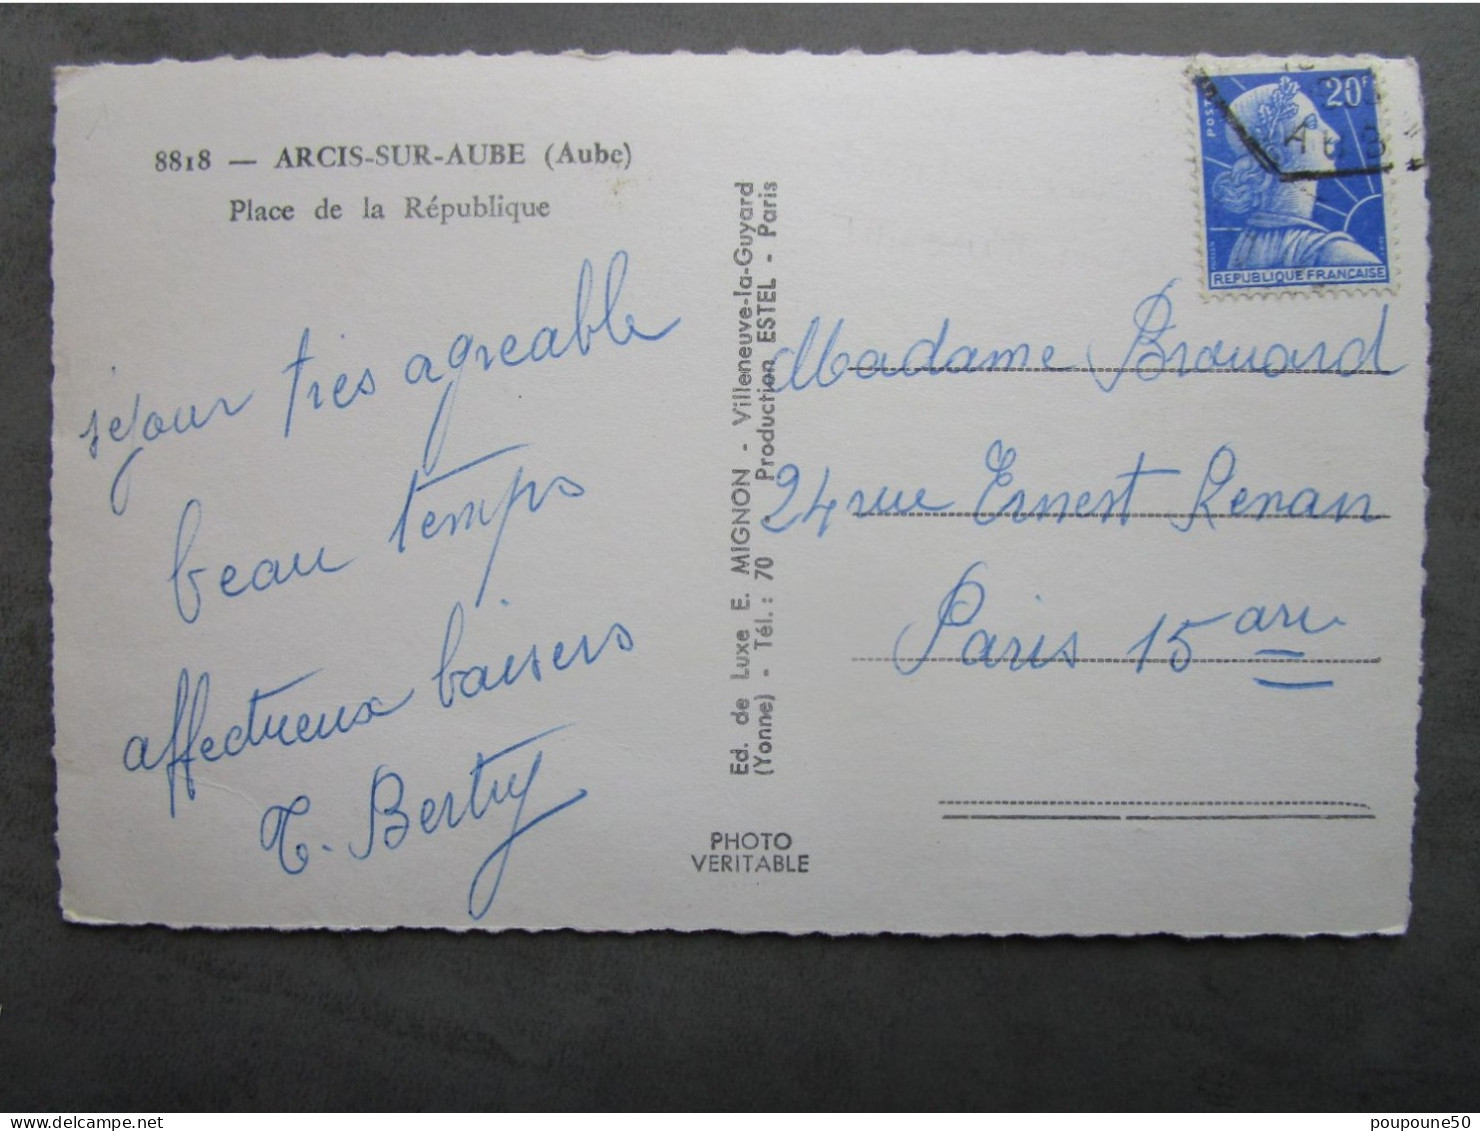 8818 — ARCIS-SUR-AUBE (Aube)
Place de la République
séjour très agréable
beau temps
affectueux baisers
T. Bertry
Ed. de Luxe E. MIGNON - Villeneuve-la-Guyard
(Yonne) - Tél. : 70 Production ESTEL - Paris
PHOTO
VERITABLE
POSTES
20F
AUBE
REPUBLIQUE FRANÇAISE
Madame Brouard
24 rue Ernest Renan
Paris 15 arr
poupoune50